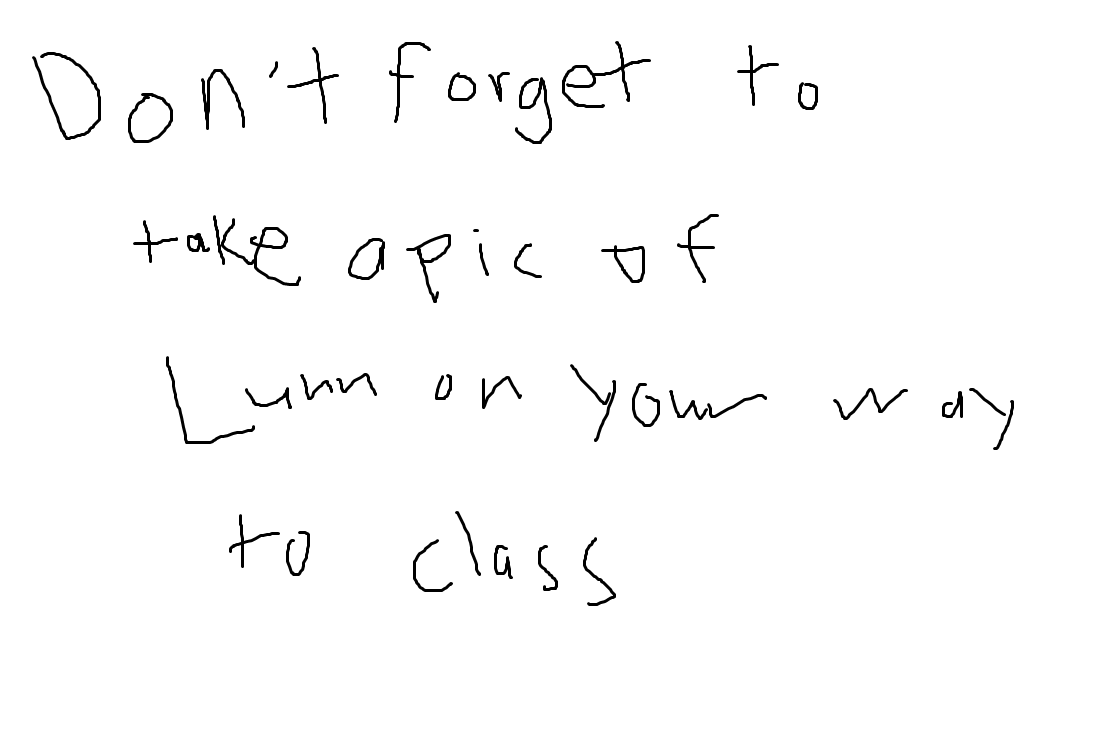 Don't forget to
take a pic of
Lunn on your way
to class